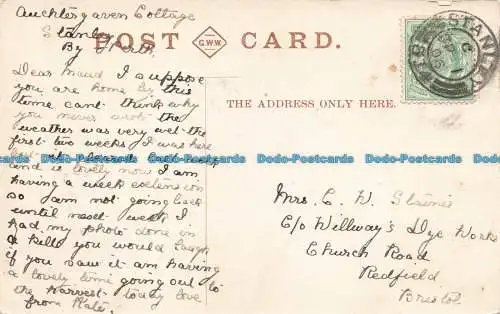 Auchtergaven Cottage
Stanley
By Perth
POST CARD.
G.W.W.
Dear Maud I suppose
you are home by this
time cant think why
you never wrote the
weather was very wet the
first two weeks I was here
but
and is lovely now I am
having a week extension
so I am not going back
until next week I
had my photo done in
a kilt you would laugh
if you saw it am having
a lovely time going out to
the harvest today love
from Kate
THE ADDRESS ONLY HERE.
STANLEY
Mrs. C. W. Staines
C/o Willway's Dye Works
Church Road
Redfield
Bristol
Dodo-Postcards Dodo-Postcards Dodo-Postcards Dodo-Postcards Dodo-Postcards